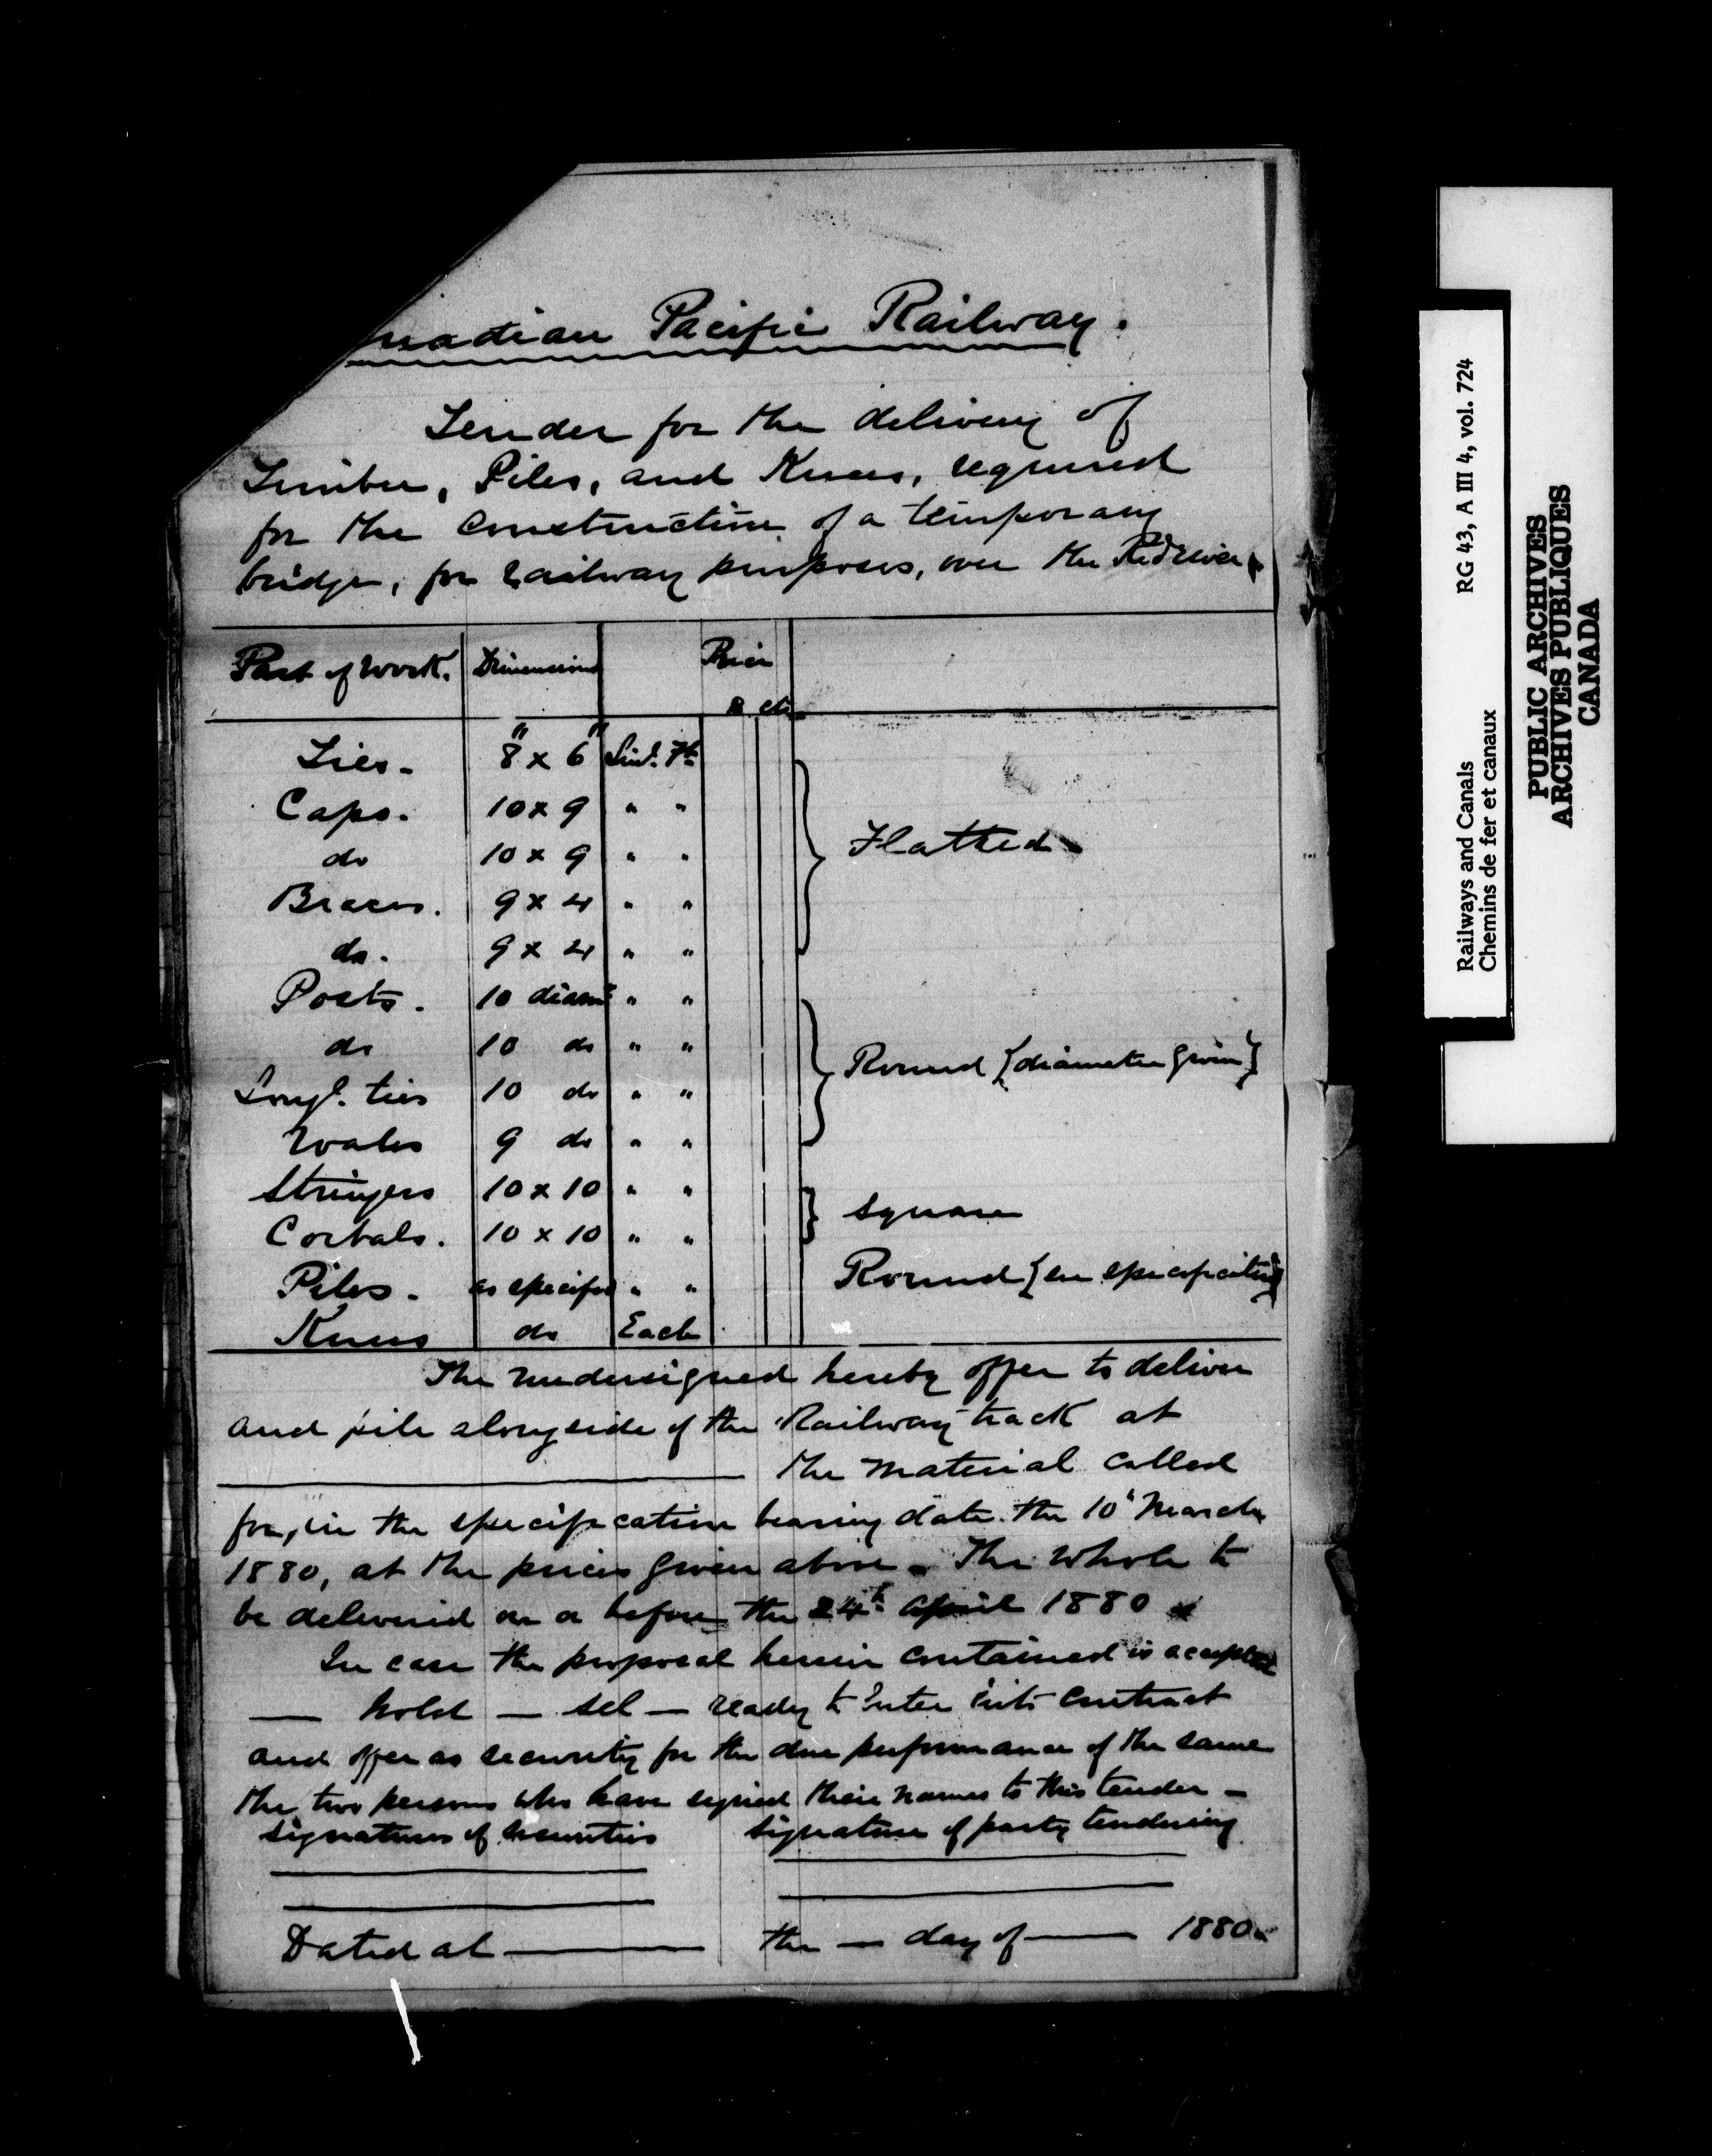 nadian Pacific Railway.
Tender for the delivery of
Timber, Piles, and Knees, required
for the Construction of a temporary
bridge, for Railway purposes, over the Red River
Part of Work. Dimensions Price
$ cts
Ties. 8" x 6" Linl. Ft.
Caps. 10 x 9 " "
do 10 x 9 " "
Flatted
Braces. 9 x 4 " "
do. 9 x 4 " "
Posts. 10 diamr " "
do 10 do " "
Round {diameter given}
Longl. ties 10 do " "
Wales 9 do " "
Stringers 10 x 10 " "
Square
Corbals. 10 x 10 " "
Piles. as specified " " Round {see specification}
Knees do Each
The undersigned hereby offer to deliver
and pile alongside of the Railway track at
the material called
for, in the specification bearing date the 10" March
1880, at the prices given above. The whole to
be delivered on or before the 24th April 1880
In case the proposal herein contained is accepted
— hold — sel — ready to Enter into Contract
and offer as security for the due performance of the same
the two persons who have signed their names to this tender —
Signatures of Securities Signature of party tendering
Dated at the — day of 1880.
Railways and Canals RG 43, A III 4, vol. 724
Chemins de fer et canaux
PUBLIC ARCHIVES
ARCHIVES PUBLIQUES
CANADA